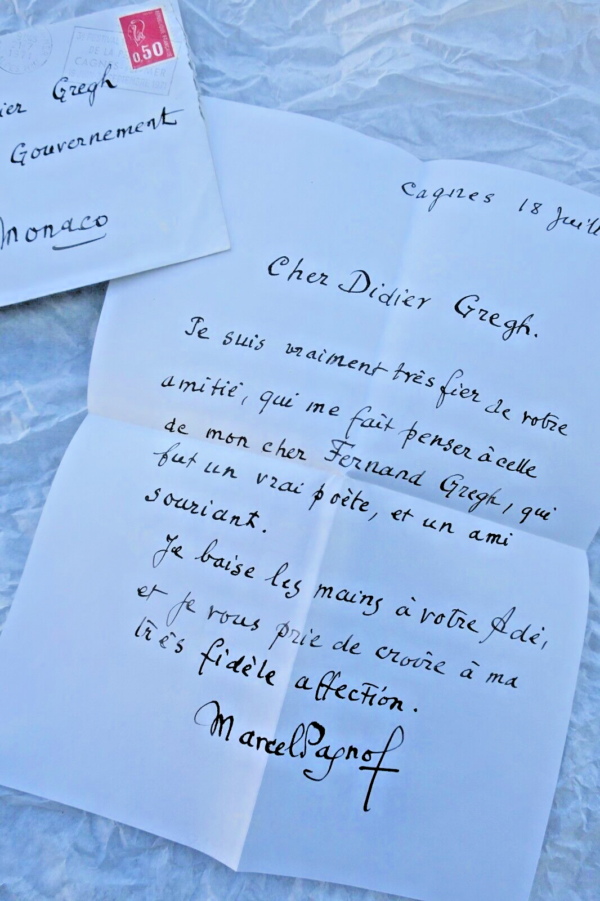 0,50
Gregh
Gouvernement
Monaco
Cagnes 18 Juill
Cher Didier Gregh.
Je suis vraiment très fier de votre
amitié, qui me fait penser à celle
de mon cher Fernand Gregh, qui
fut un vrai poète, et un ami
souriant.
Je baise les mains à votre Adé,
et je vous prie de croire à ma
très fidèle affection.
Marcel Pagnol